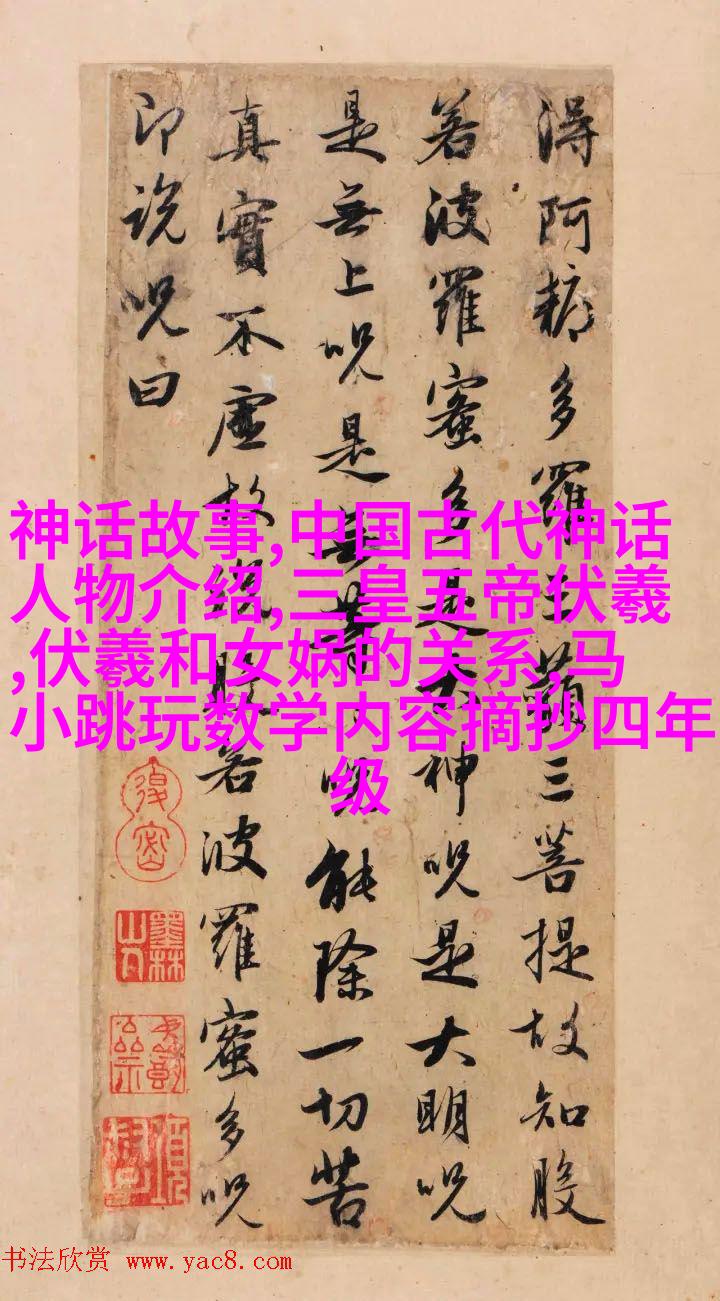 得阿耨多羅三藐三菩提故知般
若波羅蜜多是大神呪是大明呪
是無上呪是無等等呪能除一切苦
真實不虛故說般若波羅蜜多呪
即說呪曰
神话故事,中国古代神话
人物介绍,三皇五帝伏羲
,伏羲和女娲的关系,马
小跳玩数学内容摘抄四年
级
墨林山人
书法欣赏 www.yac8.com